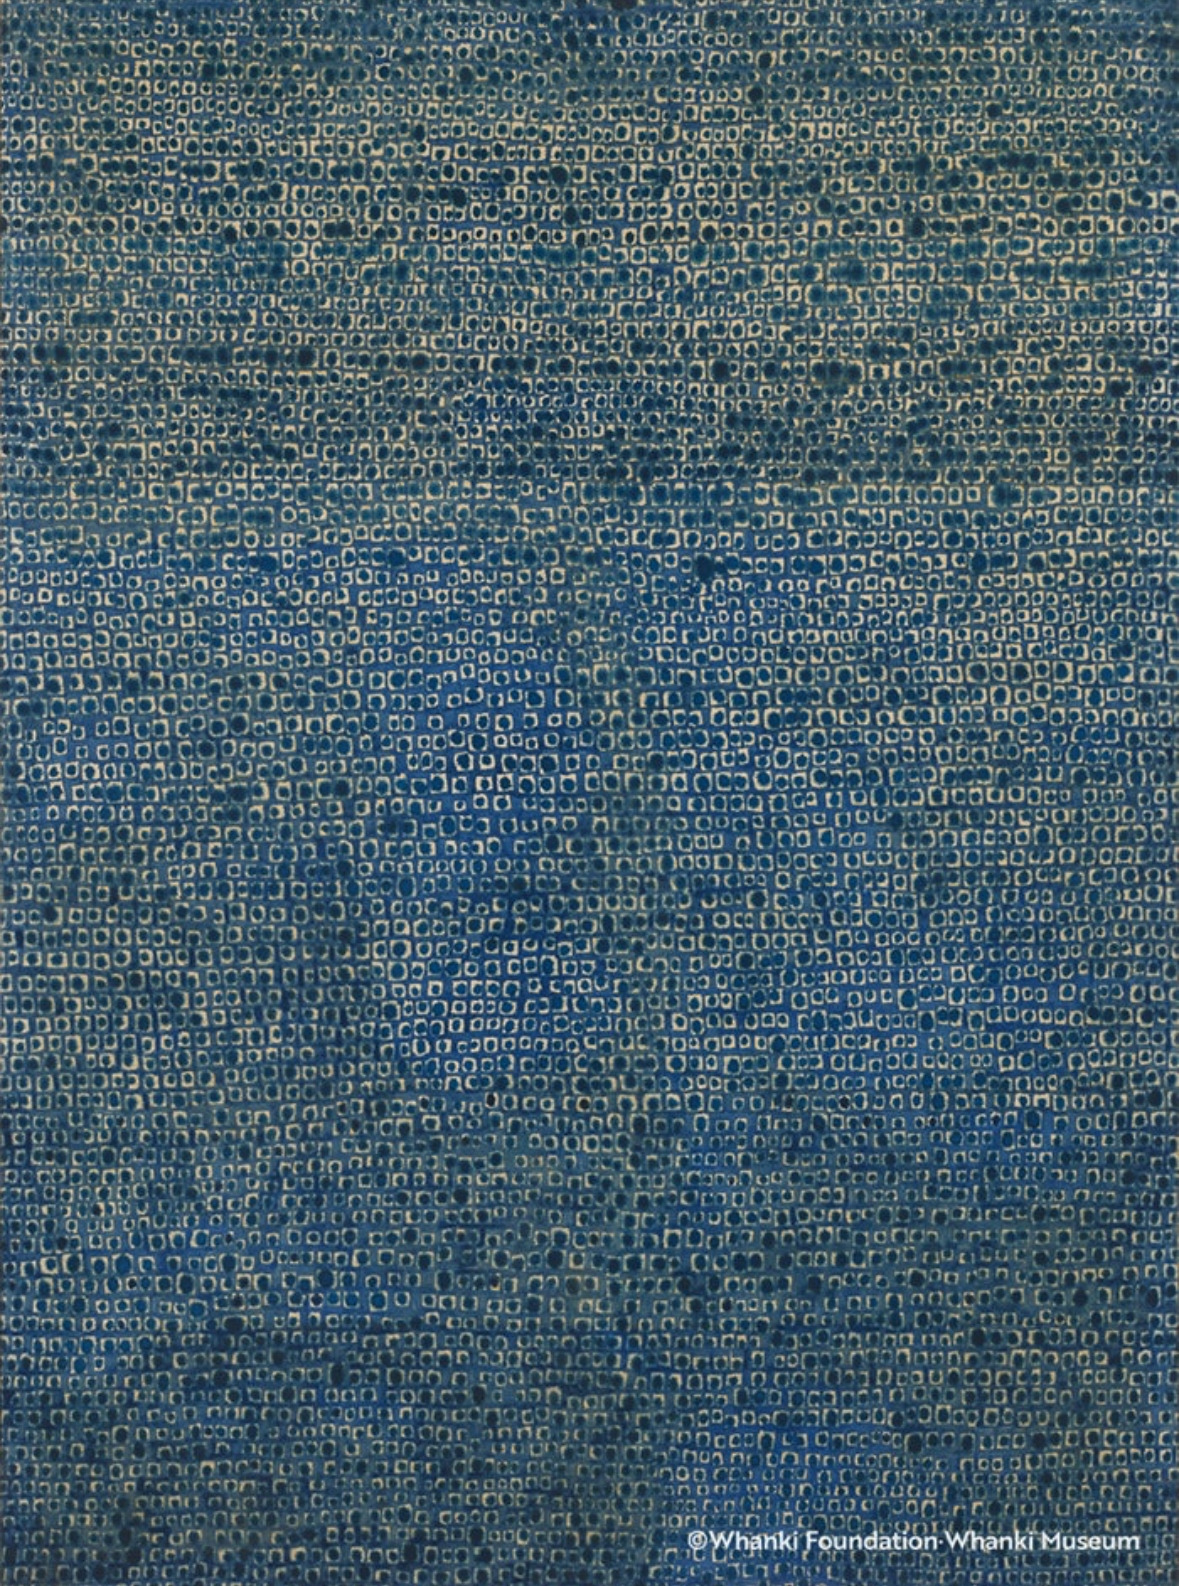 ©Whanki Foundation·Whanki Museum